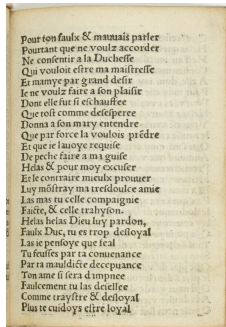 Pour ton faulx & mauuais parler
Pourtant que ne voulz accorder
Ne consentir a la Duchesse
Qui vouloit estre ma maistresse
Et mamye par grand desir
Ie ne voulz faire a son plaisir
Dont elle fut si eschauffee
Que tost comme desesperee
Donna a son mary entendre
Que par force la voulois prẽdre
Et que ie lauoye requise
De peche faire a ma guise
Helas & pour moy excuser
Et le contraire mieulx prouuer
Luy mõstray ma tresdoulce amie
Las mas tu celle compaignie
Faicte, & celle trahyson.
Helas helas Dieu luy pardon,
Faulx Duc, tu es trop desloyal
Las ie pensoye que feal
Tu feusses par ta conuenance
Par ta mauldicte decepuance
Ton ame si sera dãpnee
Faulcement tu las deiellee
Comme traystre & desloyal
Plus te cuidoys estre loyal